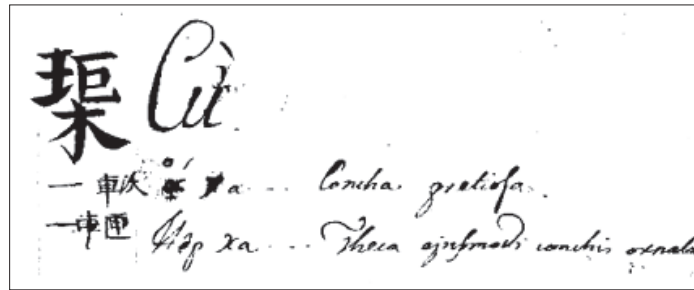 Cừ
一 車 xa ... Concha pretiosa.
一車匣 Hộp xa ... Theca ejusmodi conchis ornata